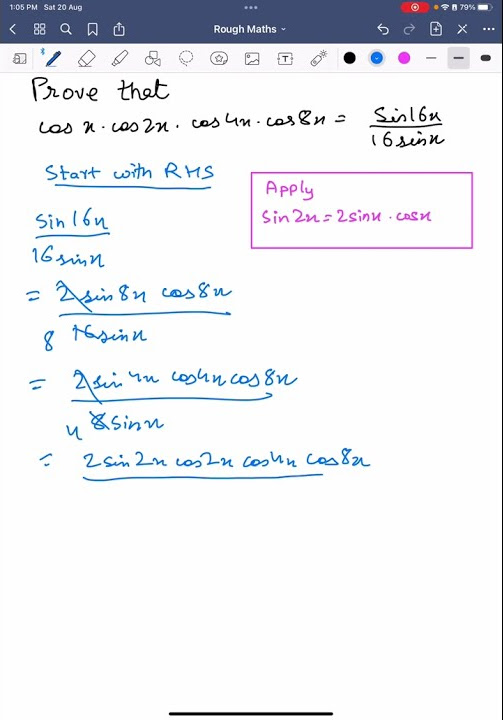 1:05 PM Sat 20 Aug 79%
Rough Maths
Prove that
cos x . cos2x . cos4x . cos8x = Sin16x
16sinx
Start with RHS
Apply
Sin 2x = 2sinx . cosx
Sin16x
16sinx
= 2 sin8x cos8x
8 16sinx
= 2 sin4x cos4x cos8x
4 8sinx
= 2sin2x cos2x cos4x cos8x